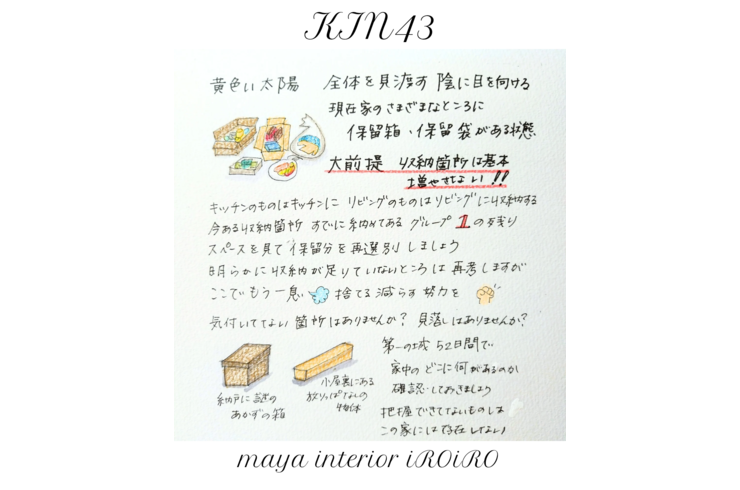 KIN43
黄色い太陽 全体を見渡す 陰に目を向ける
現在家のさまざまなところに
保留箱・保留袋がある状態
大前提 収納箇所は基本
増やさない!!
キッチンのものはキッチンに リビングのものはリビングに収納する
今ある収納箇所 すでに納めてある グループ1の残り
スペースを見て 保留分を再選別しましょう
明らかに収納が足りていないところは 再考しますが
ここでもう一息 捨てる 減らす 努力を
気付いてない 箇所はありませんか? 見落しはありませんか?
納戸に謎の
あかずの箱
小屋裏にある
放りっぱなしの
物体
第一の城 52日間で
家中の どこに何があるのか
確認しておきましょう
把握できてないものは
この家には存在しない
maya interior iROiRO